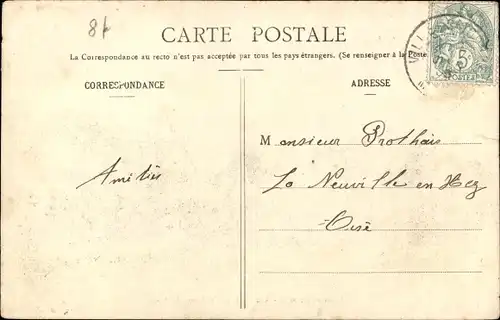 8f
CARTE POSTALE
La Correspondance au recto n'est pas acceptée par tous les pays étrangers. (Se renseigner à la Poste
CORRESPONDANCE
ADRESSE
5
POSTES
Monsieur Prothais
La Neuville en Hez
Oise
Amitiés